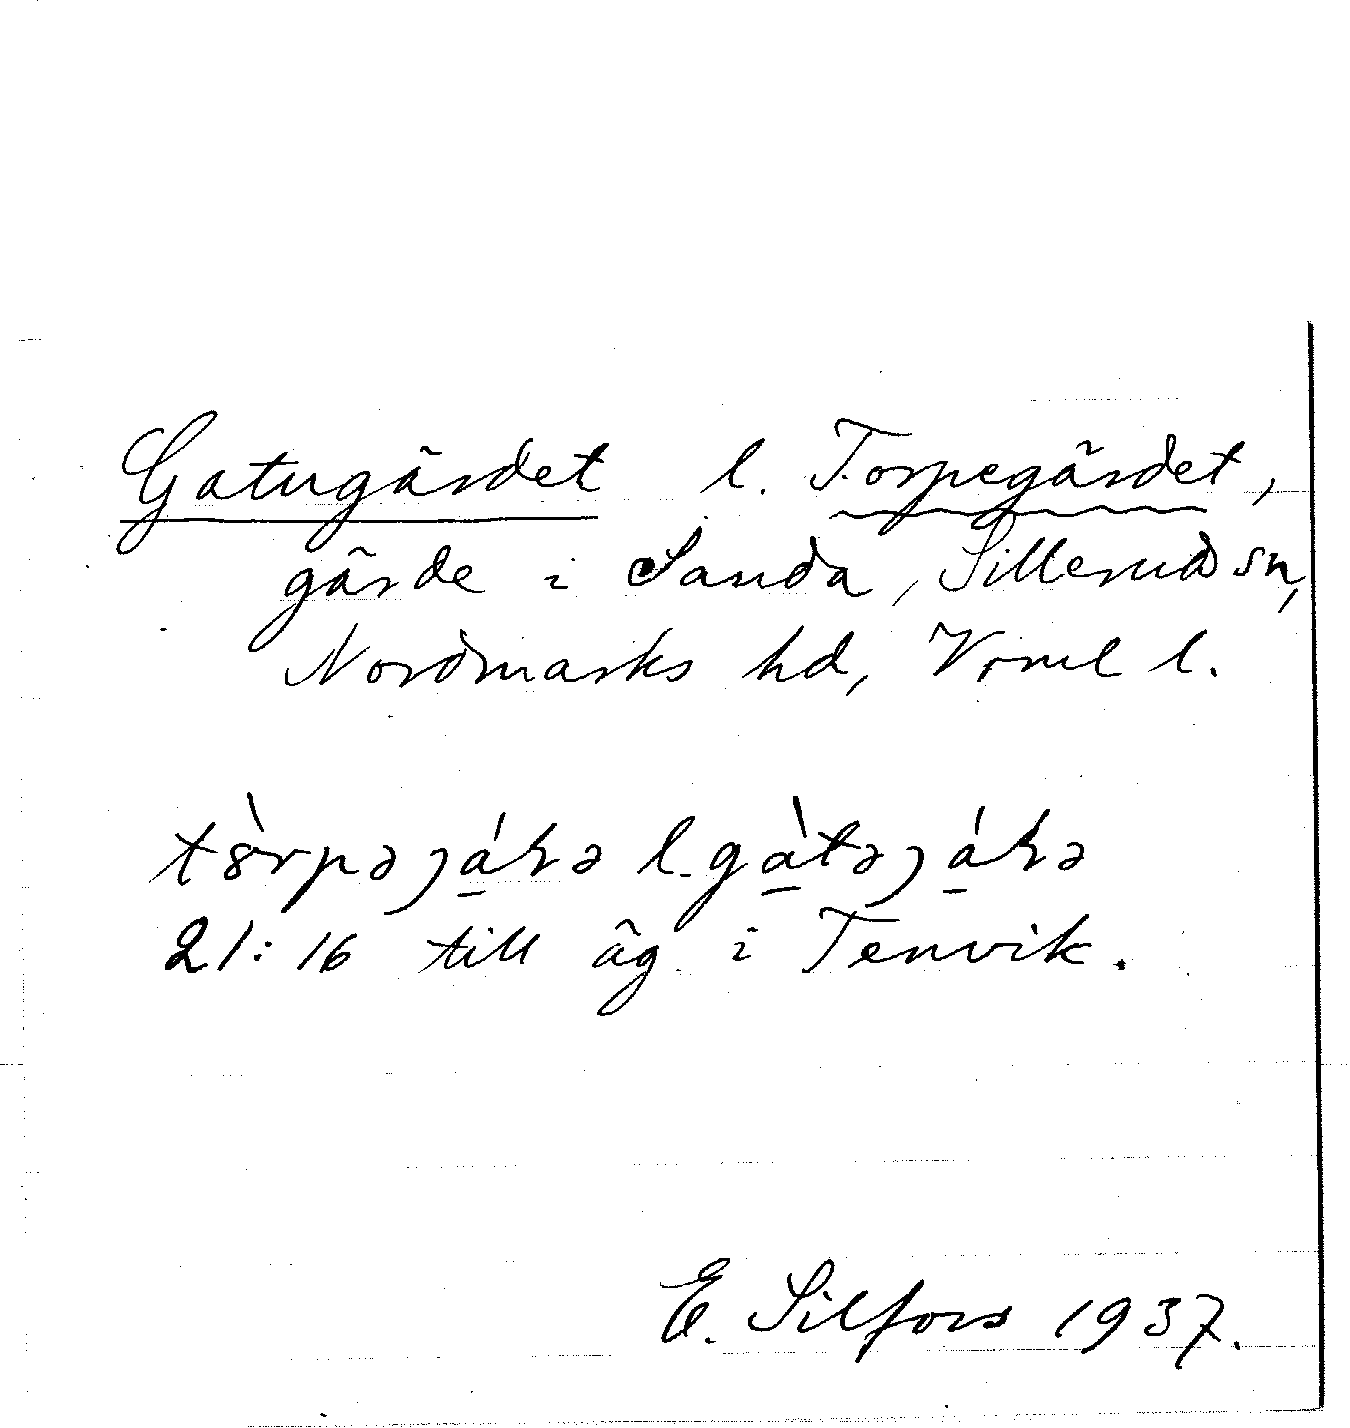 Gatugärdet l. Torpegärdet,
gärde i Sanda, Sillerud sn,
Nordmarks hd, Vrml l.
l.
21:16 till äg. i Tenvik.
E. Silfors 1937.